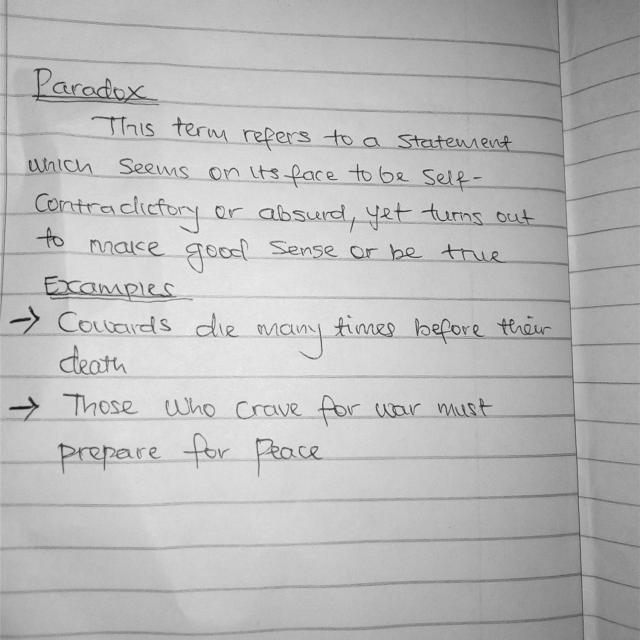 Paradox
This term refers to a statement
which seems on its face to be self-
contradictory or absurd, yet turns out
to make good sense or be true
Examples
→ Cowards die many times before their
death
→ Those who crave for war must
prepare for peace